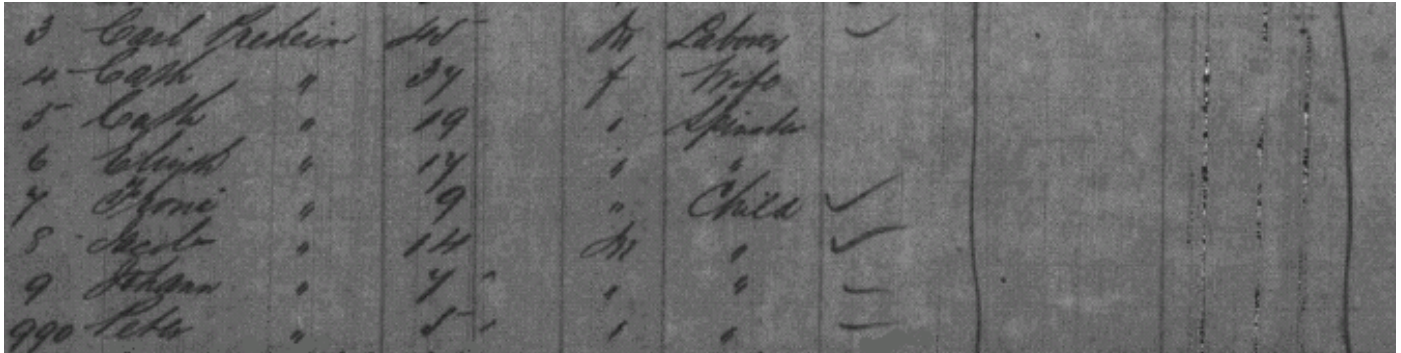 3 Carl Predein 45 M Laborer
4 Cath " 37 f Wife
5 Cath " 19 " Spinster
6 " 17 " "
7 " 9 " Child ✓
8 Jacob " 14 M " ✓
9 Johann " 7 " "
990 Peter " 5 " "